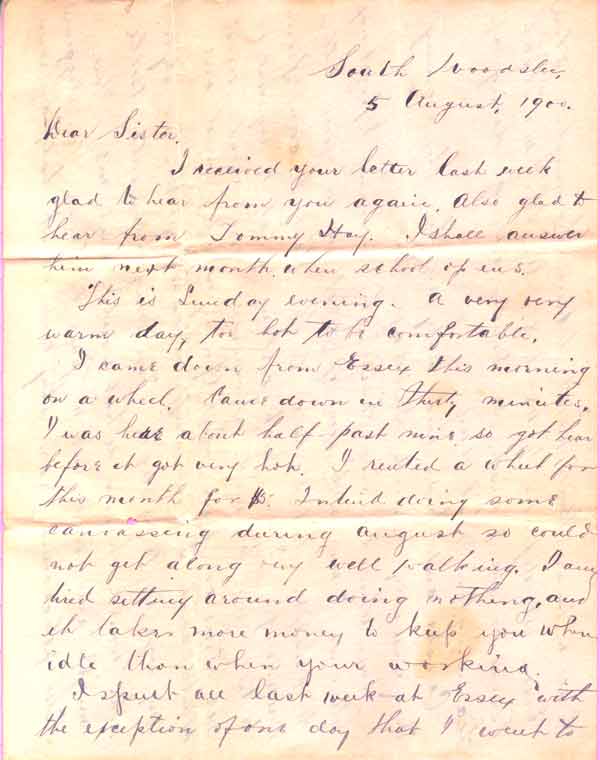 South Woodslee,
5 August, 1900.
Dear Sister,
I received your letter last week
glad to hear from you again. Also glad to
hear from Tommy Hay. I shall answer
him next month when school opens.
This is Sunday evening. A very very
warm day, too hot to be comfortable.
I came down from Essex this morning
on a wheel. Came down in thirty minutes.
I was here about half past nine so got hear
before it got very hot. I rented a wheel for
this month for $5. Intend doing some
canvassing during August so could
not get along very well walking. I am
tired sitting around doing nothing, and
it takes more money to keep you when
idle than when your working.
I spent all last week at Essex with
the exception of one day that I went to